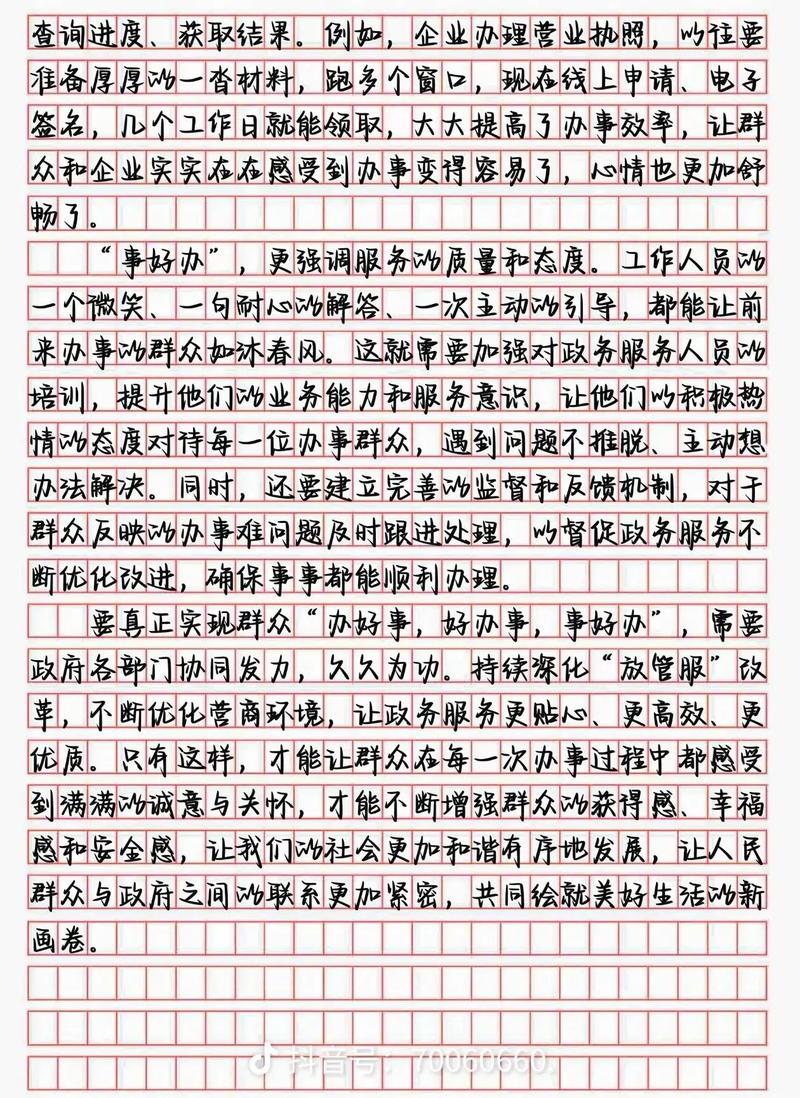 查询进度、获取结果。例如，企业办理营业执照，以往要
准备厚厚的一沓材料，跑多个窗口，现在线上申请、电子
签名，几个工作日就能领取，大大提高了办事效率，让群
众和企业实实在在感受到办事变得容易了，心情也更加舒
畅了。
“事好办”，更强调服务的质量和态度。工作人员的
一个微笑、一句耐心的解答、一次主动的引导，都能让前
来办事的群众如沐春风。这就需要加强对政务服务人员的
培训，提升他们的业务能力和服务意识，让他们以积极热
情的态度对待每一位办事群众，遇到问题不推脱、主动想
办法解决。同时，还要建立完善的监督和反馈机制，对于
群众反映的办事难问题及时跟进处理，以督促政务服务不
断优化改进，确保事事都能顺利办理。
要真正实现群众“办好事，好办事，事好办”，需要
政府各部门协同发力，久久为功。持续深化“放管服”改
革，不断优化营商环境，让政务服务更贴心、更高效、更
优质。只有这样，才能让群众在每一次办事过程中都感受
到满满的诚意与关怀，才能不断增强群众的获得感、幸福
感和安全感，让我们的社会更加和谐有序地发展，让人民
群众与政府之间的联系更加紧密，共同绘就美好生活的新
画卷。
抖音号：70060660